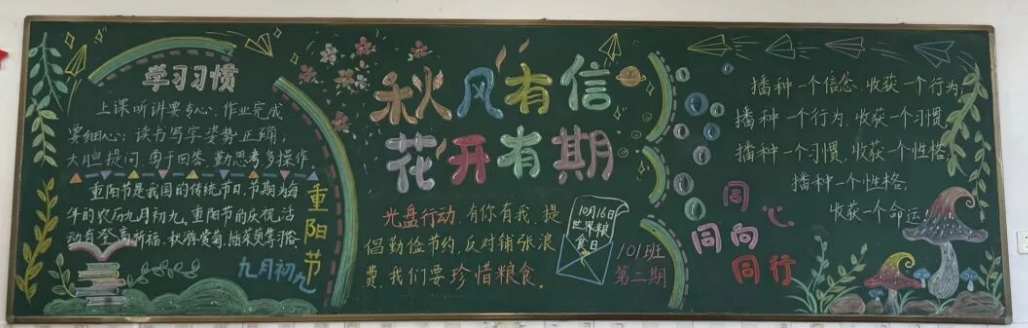 学习习惯
上课听讲要专心，作业完成
要细心；读书写字姿势正确；
大胆提问，勇于回答，勤思考多操作
重阳节是我国的传统节日，节期为每
年的农历九月初九，重阳节的庆祝活
动有登高祈福、秋游赏菊、插茱萸等习俗
重阳节
九月初九
秋风有信
花开有期
光盘行动，有你有我，提
倡勤俭节约，反对铺张浪
费，我们要珍惜粮食。
10月16日
世界粮
食日
101班
第二期
同心
同向
同行
播种一个信念，收获一个行为；
播种一个行为，收获一个习惯
播种一个习惯，收获一个性格
播种一个性格，
收获一个命运！